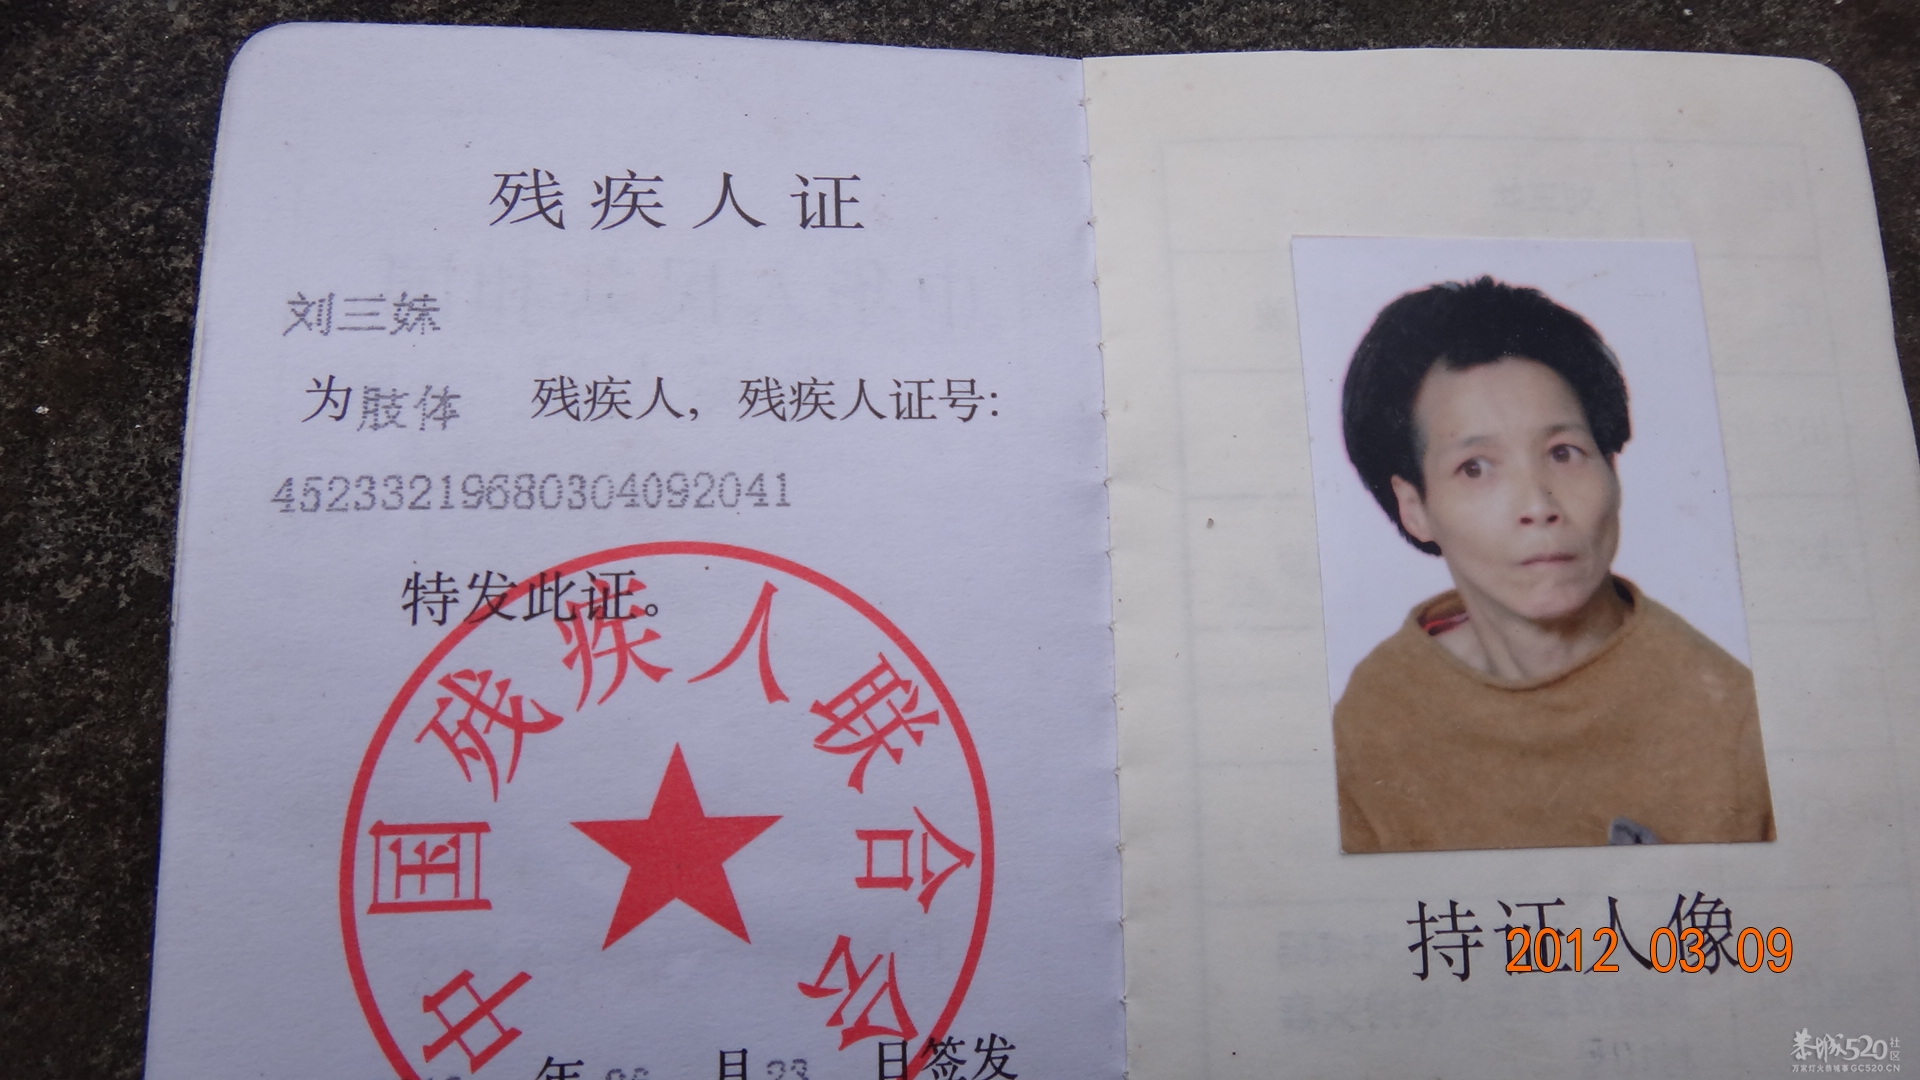 残疾人证
刘三妹
为肢体 残疾人，残疾人证号：
45233219680304092041
特发此证。
中国残疾人联合会
年 月23 日签发
持证人像
2012 03 09
恭城520社区
万家灯火恭城事GC520.CN